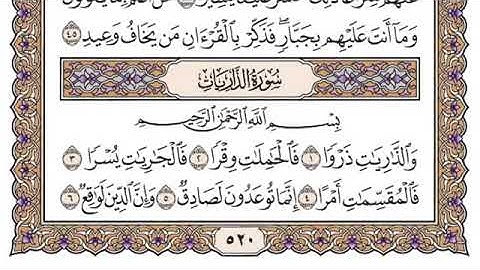 وَمَآ أَنتَ عَلَيۡهِم بِجَبَّارٖۖ فَذَكِّرۡ بِٱلۡقُرۡءَانِ مَن يَخَافُ وَعِيدِ ٤٥
سُورَةُ الذَّارِيَاتِ
بِسۡمِ ٱللَّهِ ٱلرَّحۡمَٰنِ ٱلرَّحِيمِ
وَٱلذَّٰرِيَٰتِ ذَرۡوٗا ١ فَٱلۡحَٰمِلَٰتِ وِقۡرٗا ٢ فَٱلۡجَٰرِيَٰتِ يُسۡرٗا ٣
فَٱلۡمُقَسِّمَٰتِ أَمۡرًا ٤ إِنَّمَا تُوعَدُونَ لَصَادِقٞ ٥ وَإِنَّ ٱلدِّينَ لَوَٰقِعٞ ٦
٥٢٠